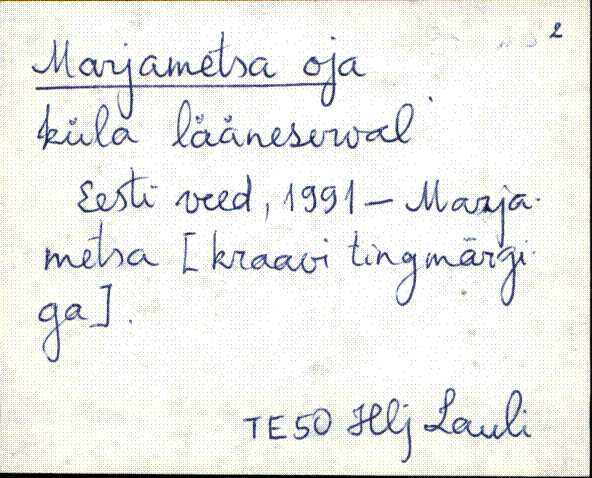 2
Marjametsa oja
küla lääneserval
Eesti veed, 1991 – Marja-
metsa [kraavi tingmärgi-
ga].
TE50 Hlj Lauli